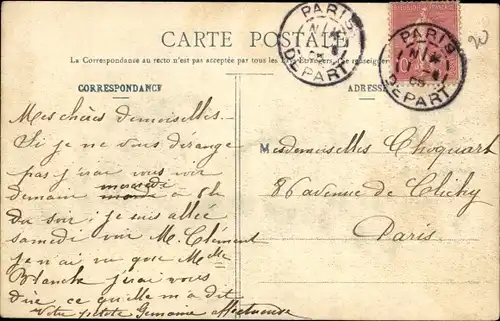 PARIS
DÉPART
PARIS
DÉPART
20
CARTE POSTALE
La Correspondance au recto n'est pas acceptée par tous les
CORRESPONDANCE
ADRESSE
Mes chères demoiselles.
Si je ne vous dérange
pas j'irai vous voir
demain mercredi à 8h
du soir ; je suis allée
samedi voir M. Clément
je n'ai vu que Melle
Blanche j'irai vous
dire ce qu'elle m'a dit
Votre petite Germaine affectueuse
Mesdemoiselles Choquart
86 avenue de Clichy
Paris.